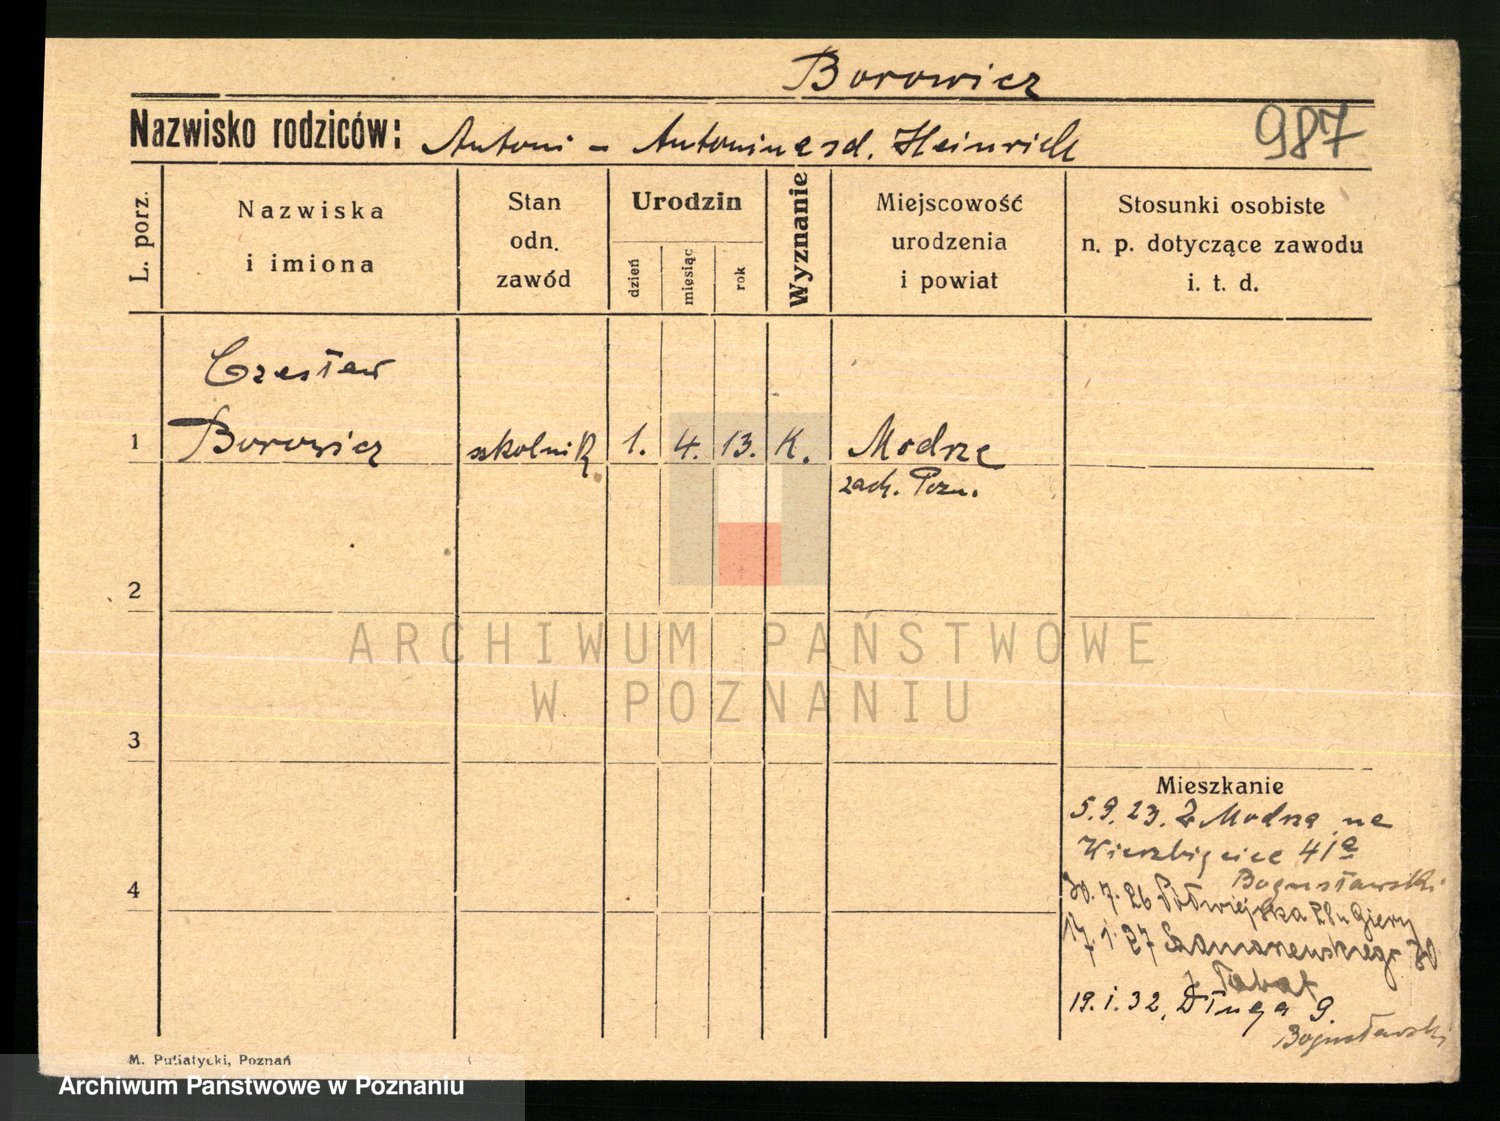 Borowicz
Nazwisko rodziców: Antoni - Antonina zd. Heinrich
987
L. porz.
Nazwiska
i imiona
Stan
odn.
zawód
Urodzin
dzień
miesiąc
rok
Wyznanie
Miejscowość
urodzenia
i powiat
Stosunki osobiste
n. p. dotyczące zawodu
i. t. d.
Czesław
1 Borowicz szkolnik 1. 4. 13. K. Modrze
zach. Pozn.
2
ARCHIWUM PAŃSTWOWE
W POZNANIU
3
Mieszkanie
5.9.23. Z Modrza na
Wierzbięcice 41a
Bogusławski
4
30.7.26 Półwiejska 28 u Giery
17.1.27 30
19.1.32, Długa 9.
Bogusławski
M. Putiatycki, Poznań
Archiwum Państwowe w Poznaniu